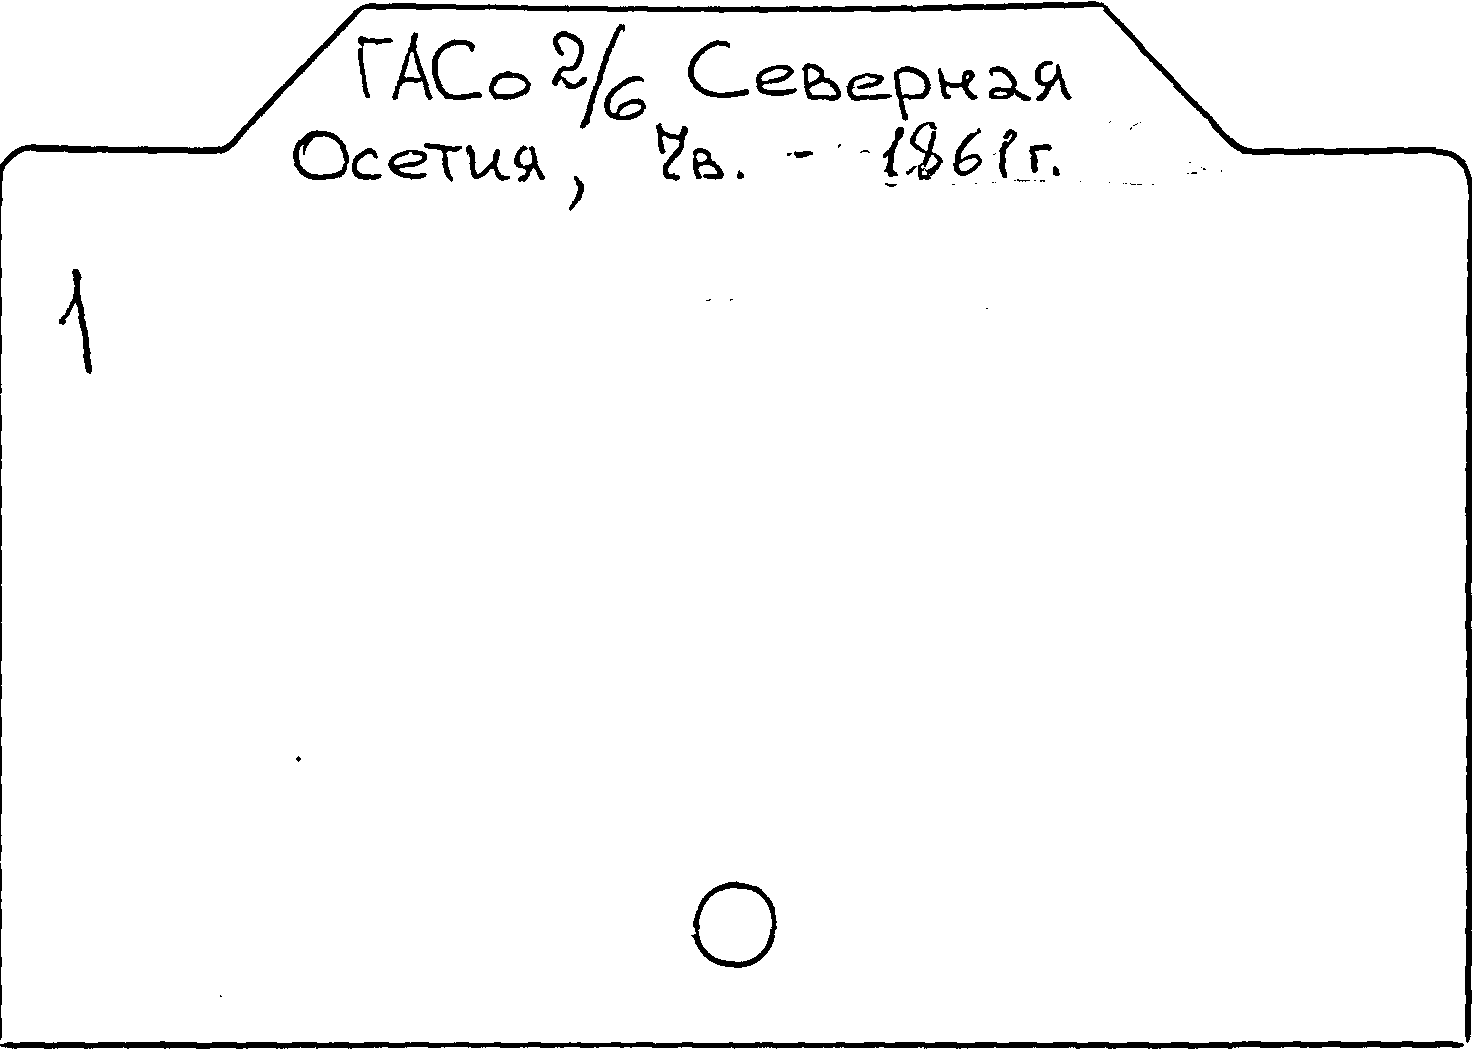 ГАСо 2/6 Северная
Осетия, 7в. - 1861г.
1